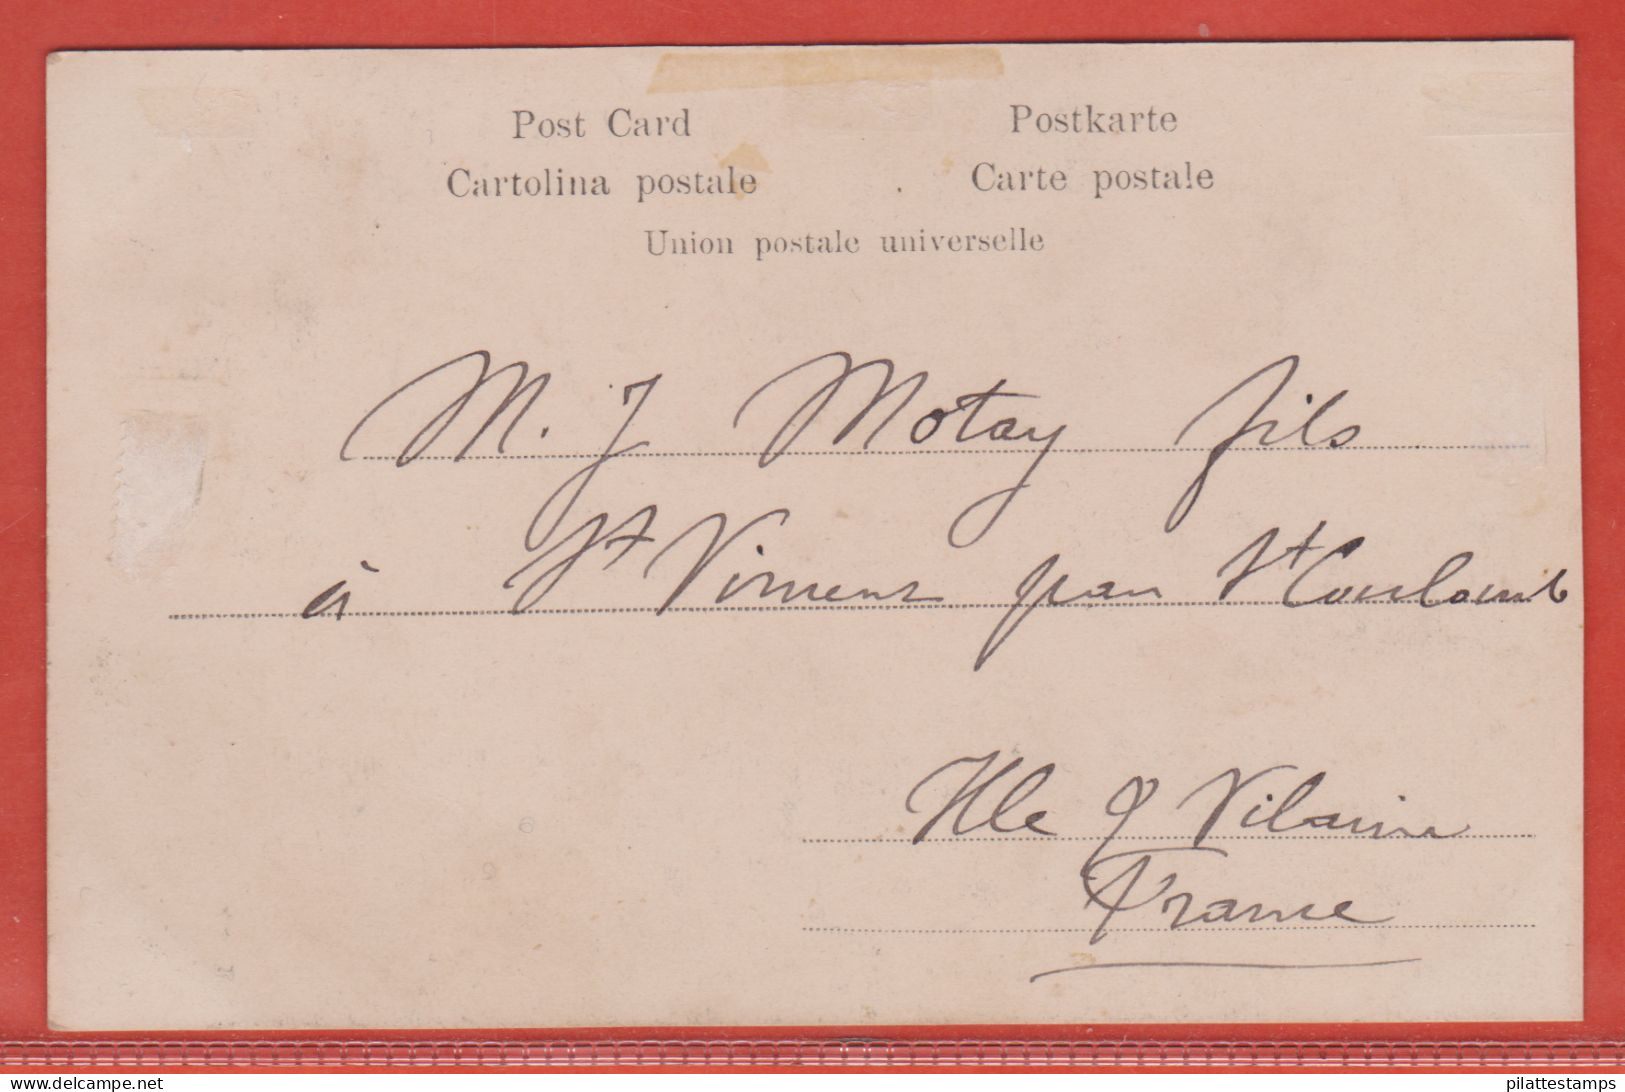 Post Card
Postkarte
Cartolina postale
Carte postale
Union postale universelle
M. J Motay fils
à St Vincent par St Coulomb
Ille & Vilaine
France
www.delcampe.net
pilattestamps